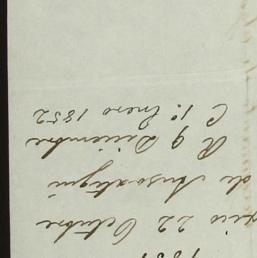 22 Octubre
de Ansoategui
R 9 Diciembre
C 1º Enero 1852